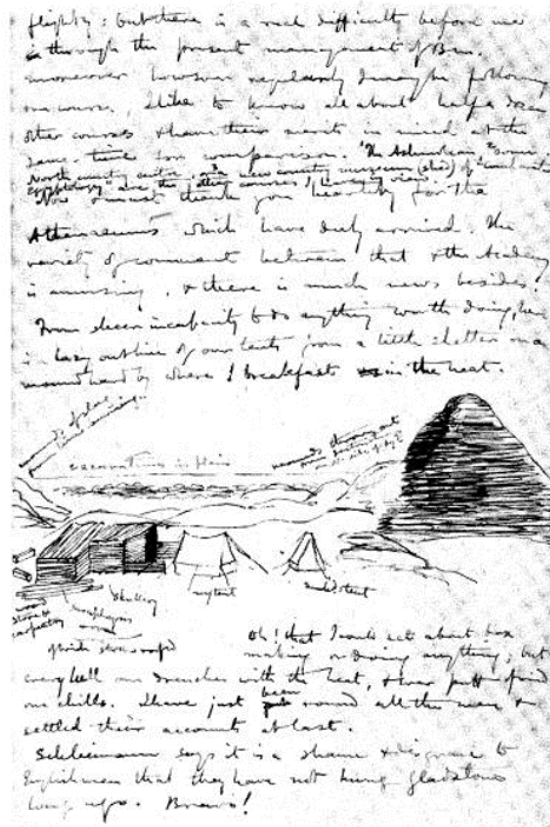 flighty: but there is a real difficulty before me
through the present management of B.M.
moreover however regularly I may be following
one course, I like to know all about half a dozen
other courses & have their merits in mind at the
same time for comparison. "The Ashmolean" "some
North country centre, and a new country museum (shed) of
Egyptology" are the other courses I have in view
Now I must thank you heartily for the
Athenaeums which have duly arrived. The
variety of comment between that & the Academy
is amusing, & there is much news besides.
From sheer incapacity to do anything worth doing, here
is lazy outline of our tents from a little shelter on a
mound hard by where I breakfast in the heat.
mounds of place
excavations in plain
mounds
my tent
tent
wood
store &
carpentry
skullery
room
Oh! that I could set about box
making or doing anything; but
every hell one drenches with the heat, & every puff of wind
one chills. I have just been round all the men &
settled their accounts at last.
Schliemann says it is a shame & disgrace to
Englishmen that they have not hung Gladstone
long ago. Bravo!